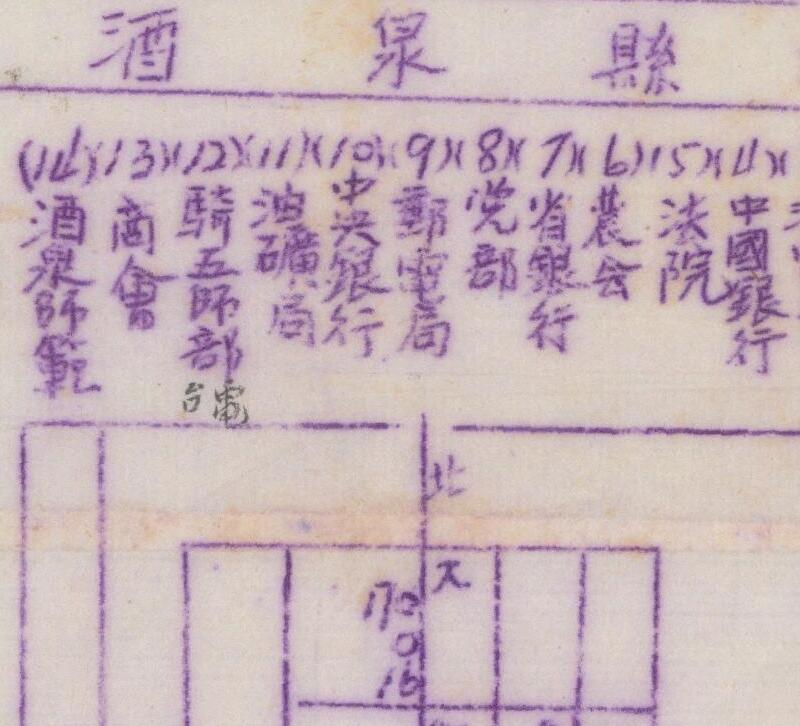 酒泉縣
(14)酒泉師範
(13)商會
(12)騎五師部
電台
(11)油礦局
(10)中央銀行
(9)郵電局
(8)党部
(7)省銀行
(6)農会
(5)法院
(4)中國銀行
北
大
170
0
16